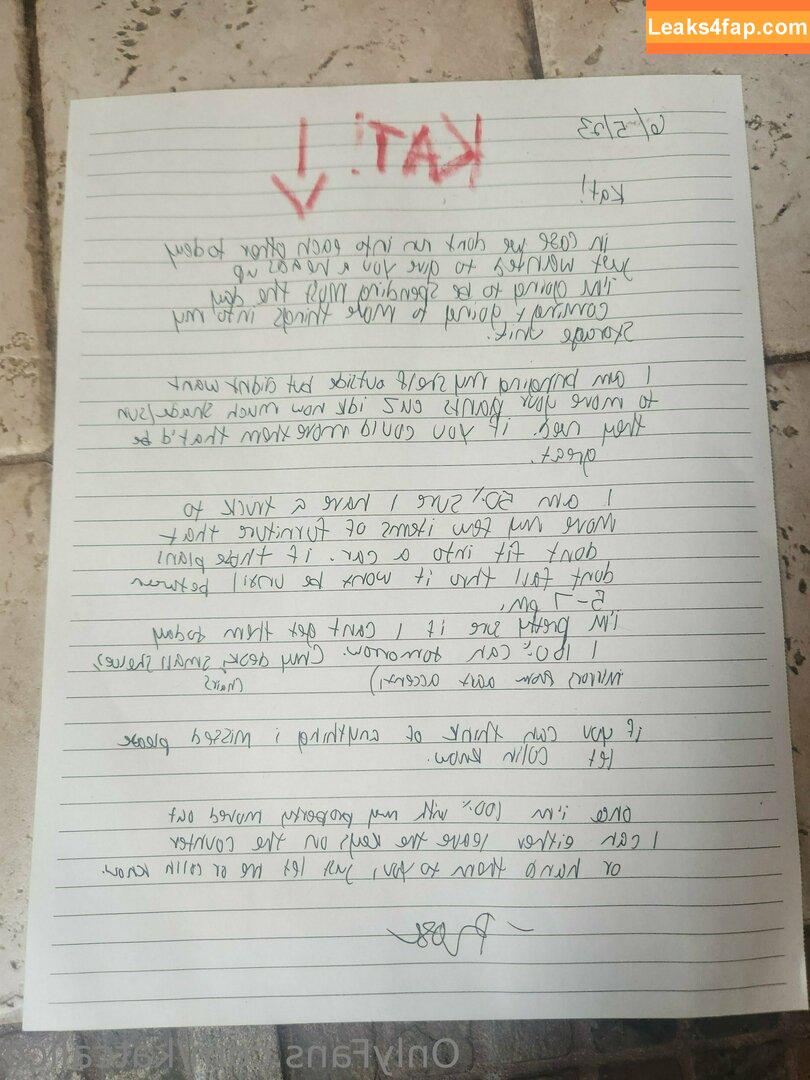 Leaks4fap.com
6/5/23
KAT!
Kat!
in case we dont run into each other today
just wanted to give you a heads up
i'm going to be spending most the day
coming + going to move things into my
storage unit.
I am bringing my shelf outside but didnt want
to move your plants cuz idk how much shade/sun
they need. if you could move them that'd be
great.
I am 50% sure I have a truck to
move my few items of furniture that
dont fit into a car. if those plans
dont fall thru it wont be until between
5-7 pm.
i'm pretty sure if I cant get them today
I 100% can tomorrow. (my desk, small shelves,
mirrors from aunt accent,) chairs
if you can think of anything i missed please
let colin know.
once i'm 100% with my property moved out
I can either leave the keys on the counter
or hand them to you, just let me or colin know.
OnlyFans